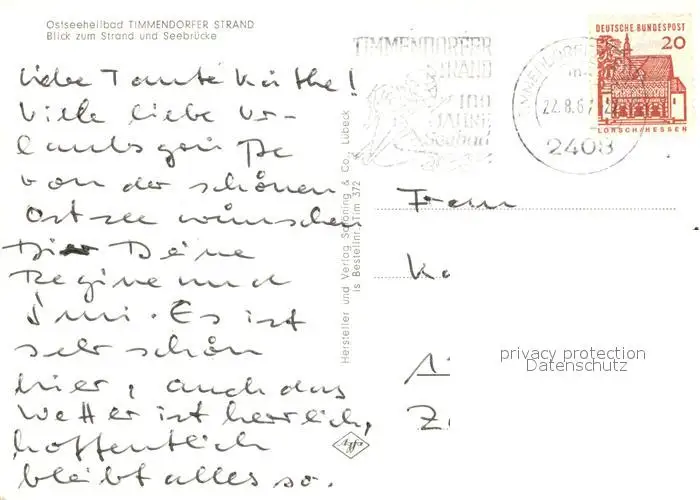 Ostseeheilbad TIMMENDORFER STRAND
Blick zum Strand und Seebrücke
Liebe Tante Käthe!
Viele liebe Ur-
laubsgrüße
von der schönen
Ostsee wünschen
Dir Deine
Regine und
Es ist
sehr schön
hier, auch das
Wetter ist herrlich,
hoffentlich
bleibt alles so.
Hersteller und Verlag Schöning & Co., Lübeck
is Bestellnr. Tim 372
Agfa
TIMMENDORFER
STRAND
100
JAHRE
Seebad
22.8.6
2408
DEUTSCHE BUNDESPOST
20
LORSCH/HESSEN
Frau
privacy protection
Datenschutz